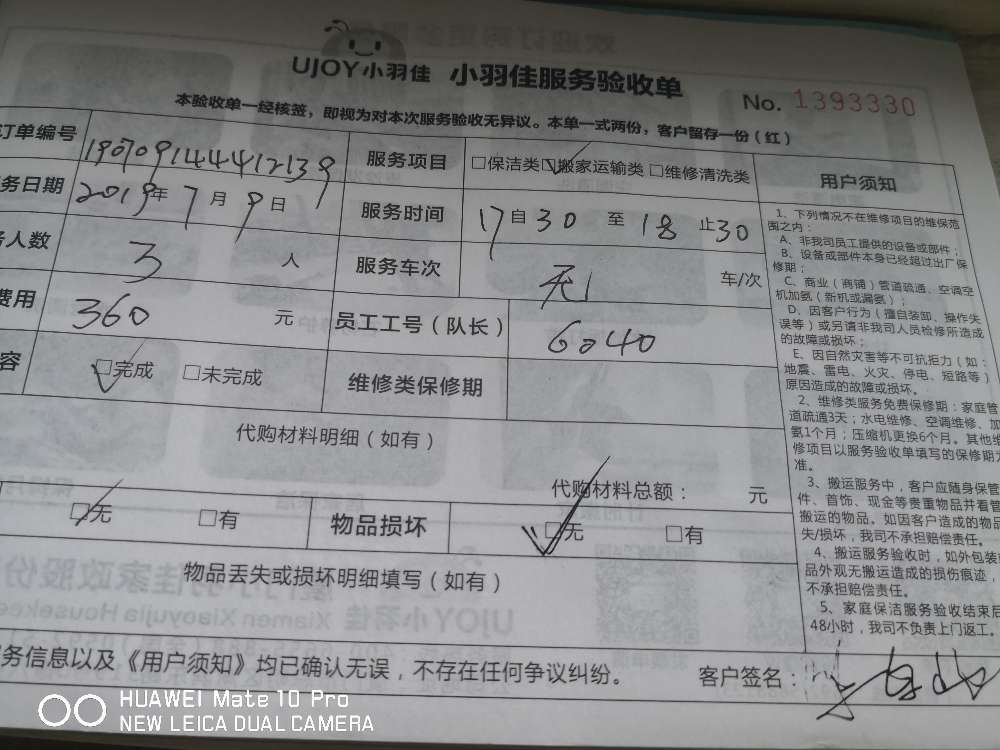 UJOY小羽佳 小羽佳服务验收单
No. 1393330
本验收单一经核签，即视为对本次服务验收无异议。本单一式两份，客户留存一份（红）
订单编号 190709144412139 服务项目 □保洁类 ☑搬家运输类 □维修清洗类 用户须知
务日期 2019年 7月 9日 服务时间 17自30至18止30
人数 3 人 服务车次 无 车/次
费用 360 元 员工工号（队长） 6040
容 ☑完成 □未完成 维修类保修期
代购材料明细（如有）
代购材料总额： 元
☑无 □有 物品损坏 ☑无 □有
物品丢失或损坏明细填写（如有）
务信息以及《用户须知》均已确认无误，不存在任何争议纠纷。 客户签名：
1、下列情况不在维修项目的维保范
围之内：
A、非我司员工提供的设备或部件；
B、设备或部件本身已经超过出厂保
修期；
C、商业（商铺）管道疏通、空调空
机加氨（新机或漏氨）；
D、因客户行为（擅自装卸、操作失
误等）或另请非我司人员检修所造成
的故障或损坏；
E、因自然灾害等不可抗拒力（如：
地震、雷电、火灾、停电、短路等）
原因造成的故障或损坏。
2、维修类服务免费保修期：家庭管
道疏通3天；水电维修、空调维修、加
氨1个月；压缩机更换6个月。其他维
修项目以服务验收单填写的保修期为
准。
3、搬运服务中，客户应随身保管
件、首饰、现金等贵重物品并看管
搬运的物品。如因客户造成的物品
失/损坏，我司不承担赔偿责任。
4、搬运服务验收时，如外包装
品外观无搬运造成的损伤痕迹，
不承担赔偿责任。
5、家庭保洁服务验收结束后
48小时，我司不负责上门返工。
HUAWEI Mate 10 Pro
NEW LEICA DUAL CAMERA